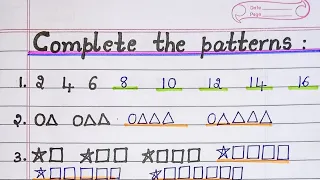 Date
Page
Complete the patterns :
1. 2 4 6 8 10 12 14 16
2. O△ O△△ O△△△ O△△△△
3. ☆□ ☆□□ ☆□□□ ☆□□□□
☆□□□□□ ☆□□□□□□